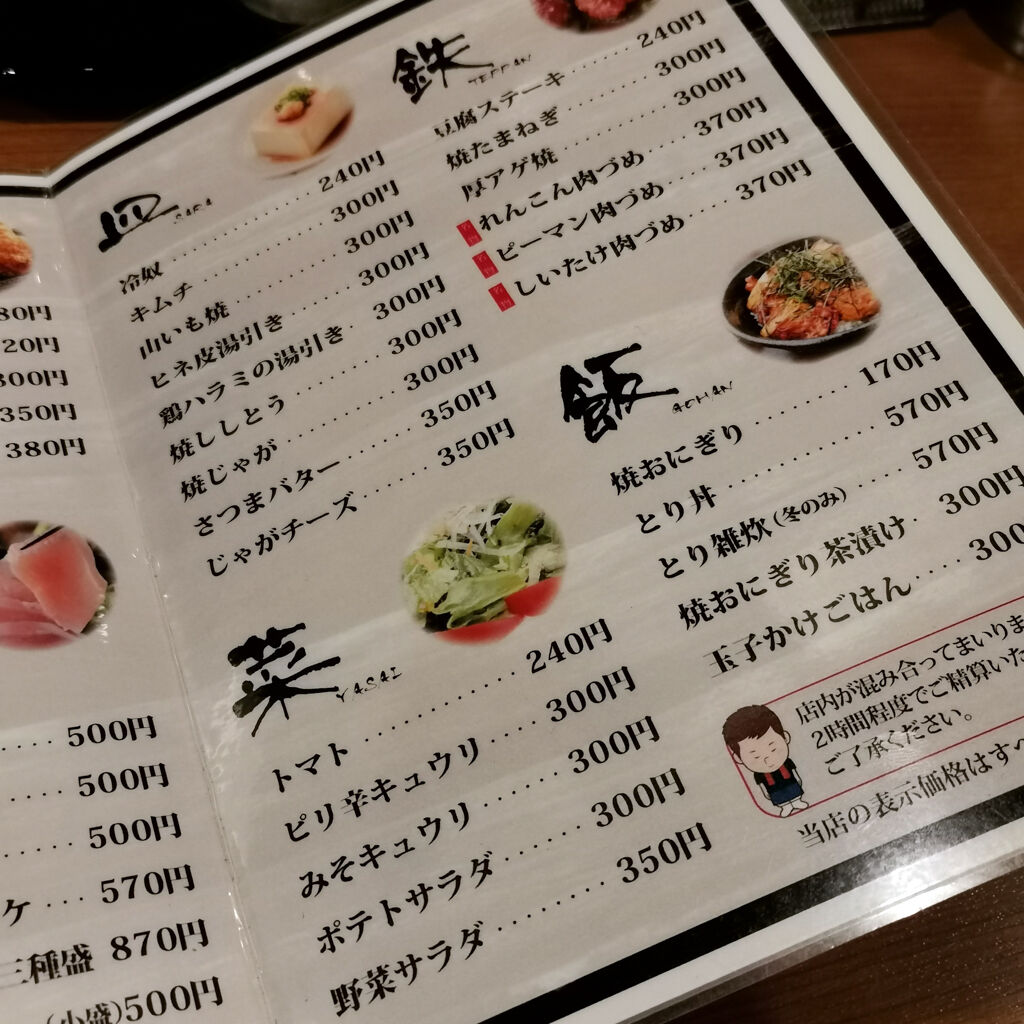 80円
20円
300円
350円
380円
500円
500円
500円
ケ 570円
三種盛 870円
(小盛)500円
皿 SARA
冷奴 240円
キムチ 300円
山いも焼 300円
ヒネ皮湯引き 300円
鶏ハラミの湯引き 300円
焼ししとう 300円
焼じゃが 300円
さつまバター 350円
じゃがチーズ 350円
菜 YASAI
トマト 240円
ピリ辛キュウリ 300円
みそキュウリ 300円
ポテトサラダ 300円
野菜サラダ 350円
鉄 TEPPAN
豆腐ステーキ 240円
焼たまねぎ 300円
厚アゲ焼 300円
れんこん肉づめ 370円
ピーマン肉づめ 370円
しいたけ肉づめ 370円
飯 GOHAN
焼おにぎり 170円
とり丼 570円
とり雑炊(冬のみ) 570円
焼おにぎり茶漬け 300円
玉子かけごはん 300
店内が混み合ってまいりま
2時間程度でご精算いた
ご了承ください。
当店の表示価格はすべ